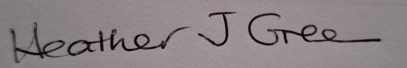 Heather J Green